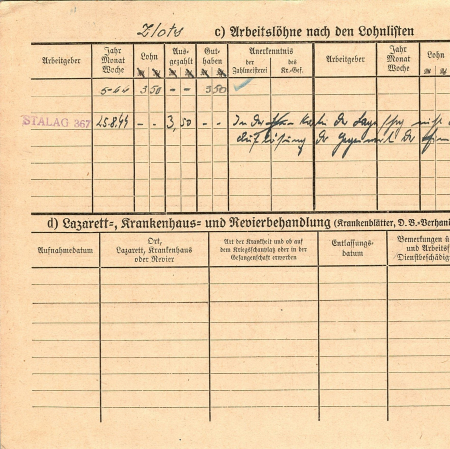 Zloty c) Arbeitslöhne nach den Lohnlisten
Arbeitgeber Jahr Monat Woche Lohn Aus-gezahlt Gut-haben Anerkenntnis der Zahlmeisterei des Kr.-Gef. Arbeitgeber Jahr Monat Woche Lohn
5-44 3 50 - - 3 50
STALAG 367 25.8.44 - - 3, 50 - - In der in der Lage nicht
Auflösung der Gegenwert der
d) Lazarett-, Krankenhaus- und Revierbehandlung (Krankenblätter, D.B.-Verhan
Aufnahmedatum Ort, Lazarett, Krankenhaus oder Revier Art der Krankheit und ob auf dem Kriegsschauplatz oder in der Gefangenschaft erworben Entlassungs-datum Bemerkungen ü und Arbeitsf Dienstbeschädig